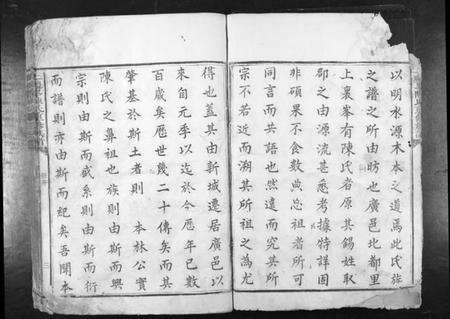 以明水源木本之道焉此氏族
之譜之所由昉也廣邑北都里
上裏峯有陳氏者原其錫姓取
郡之由源流甚悉考據特詳固
非碩果不食數典忘祖者所可
同言而共語也然遠而究其所
宗不若近而溯其所祖之為尤
得也蓋其由新城遷居廣邑以
來自元季以迄於今歷年已數
百歲矣歷世幾二十傳矣而其
肇基於斯土者則 本林公實
陳氏之鼻祖也族則由斯而興
宗則由斯而盛系則由斯而衍
而譜則亦由斯而紀矣吾聞本